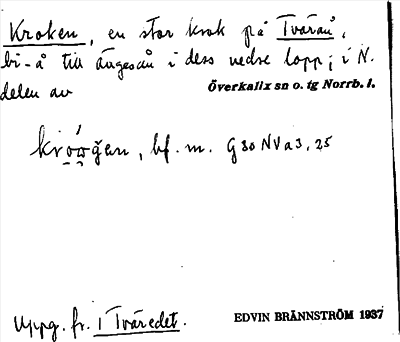 Kroken, en stor krok på Tvärån,
bi-å till Ängesån i dess nedre lopp; i N.
delen av Överkalix sn o. tg Norrb. l.
krówǧen, bf. m. G 30 NV a 3, 25
Uppg. fr. 1 Tväredet. EDVIN BRÄNNSTRÖM 1937